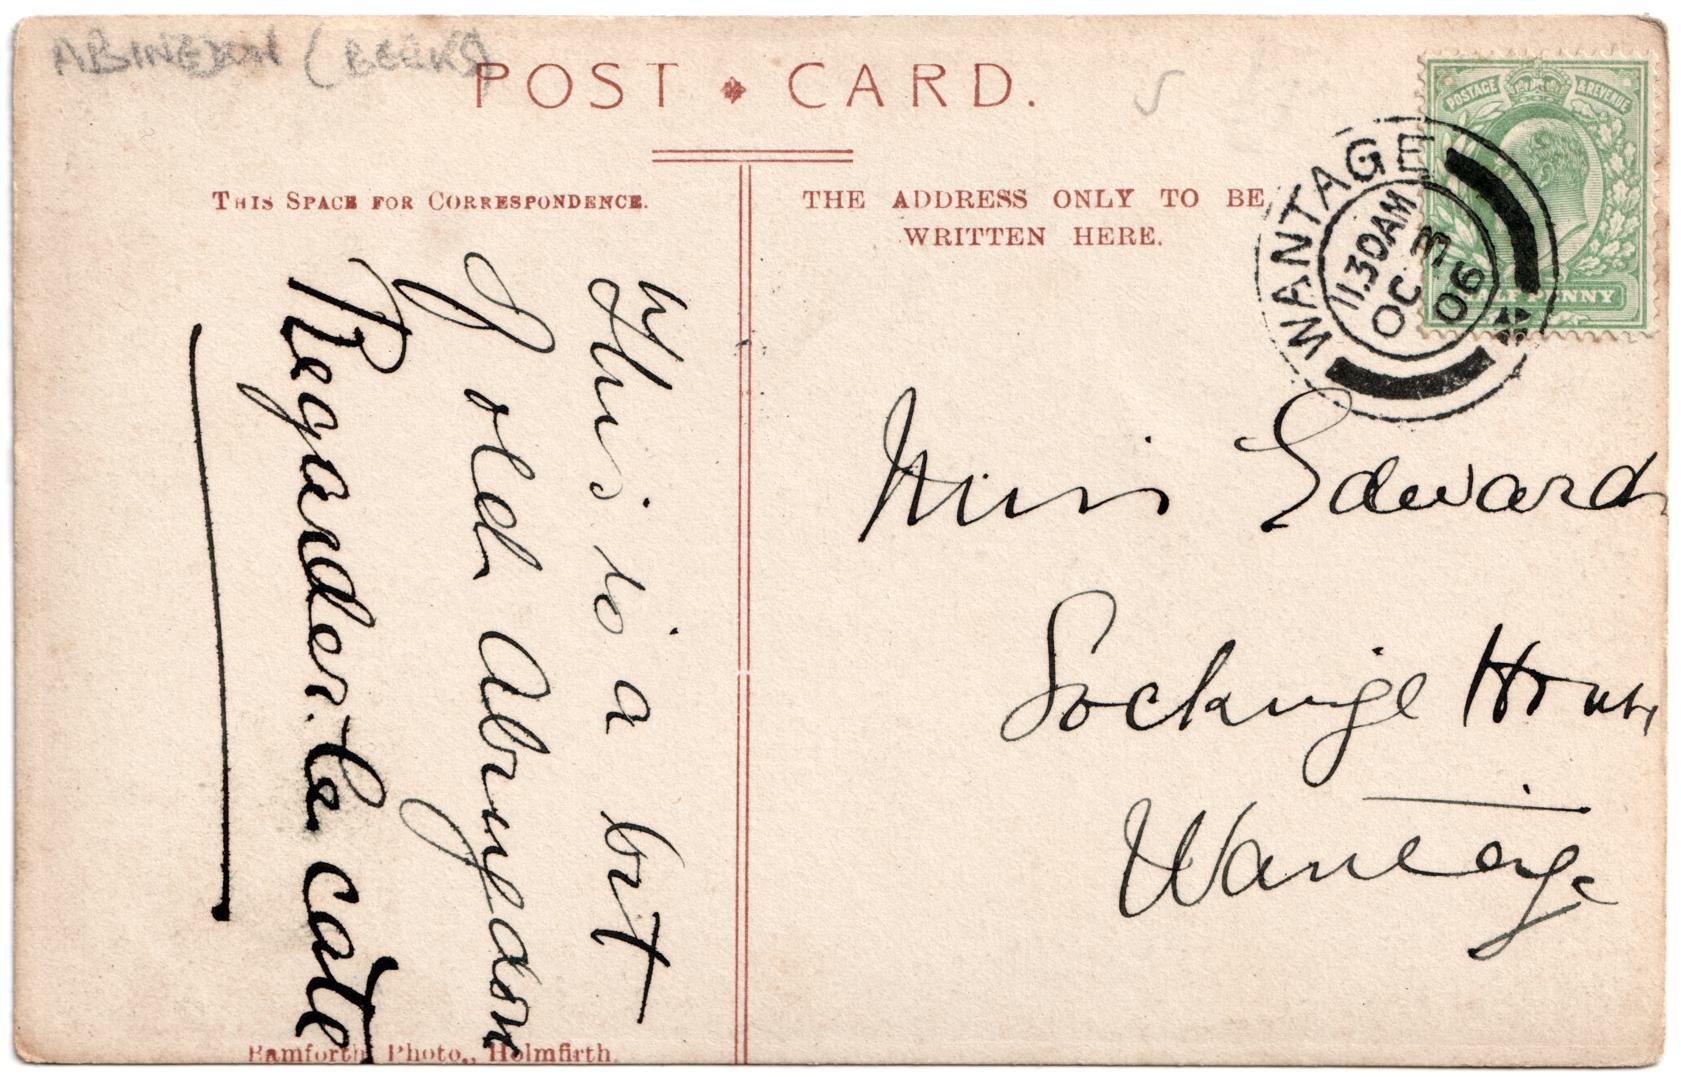 ABINGDON (BERKS)
POST CARD.
THIS SPACE FOR CORRESPONDENCE.
This is a bit
of old Abingdon
Regardez la carte
Bamforth Photo., Holmfirth.
THE ADDRESS ONLY TO BE
WRITTEN HERE.
POSTAGE & REVENUE
HALF PENNY
WANTAGE
11 30AM
OC 3
06
Miss Edwards
Lockinge House
Wantage